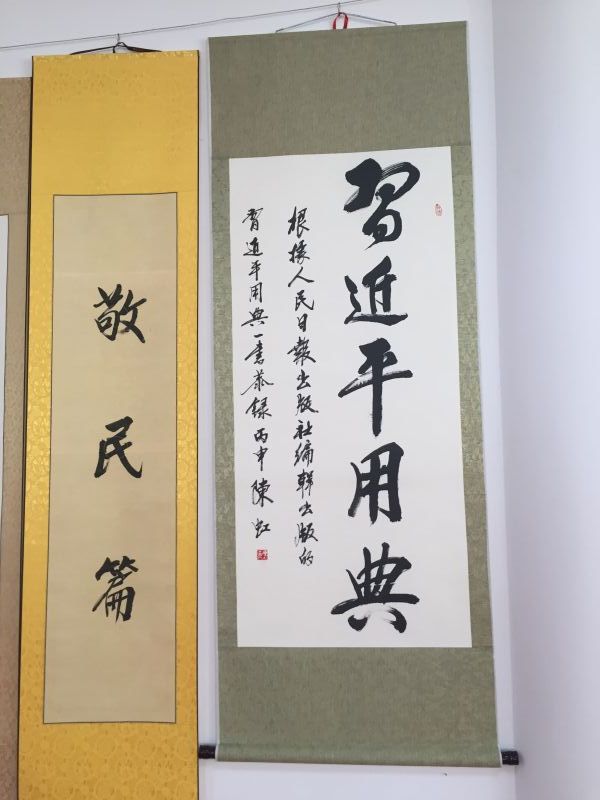 習近平用典
根據人民日報出版社編輯出版的
習近平用典一書恭録丙申陳虹
敬民篇